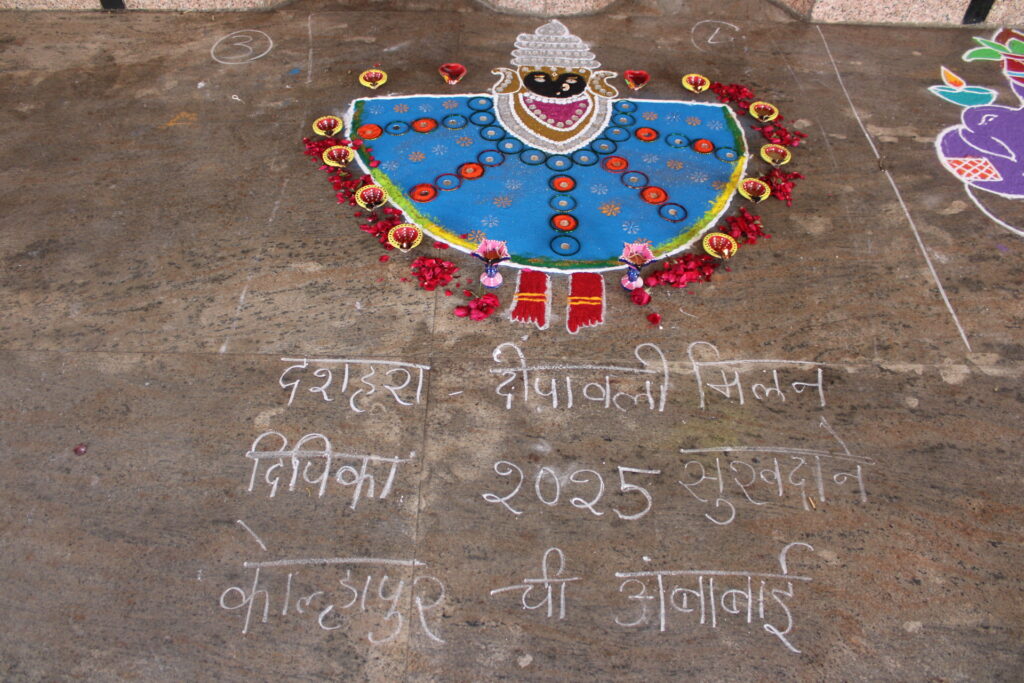 3
दशहरा - दीपावली मिलन
दिपिका २०25 सुखदाने
कोल्हापुर ची अंबाबाई